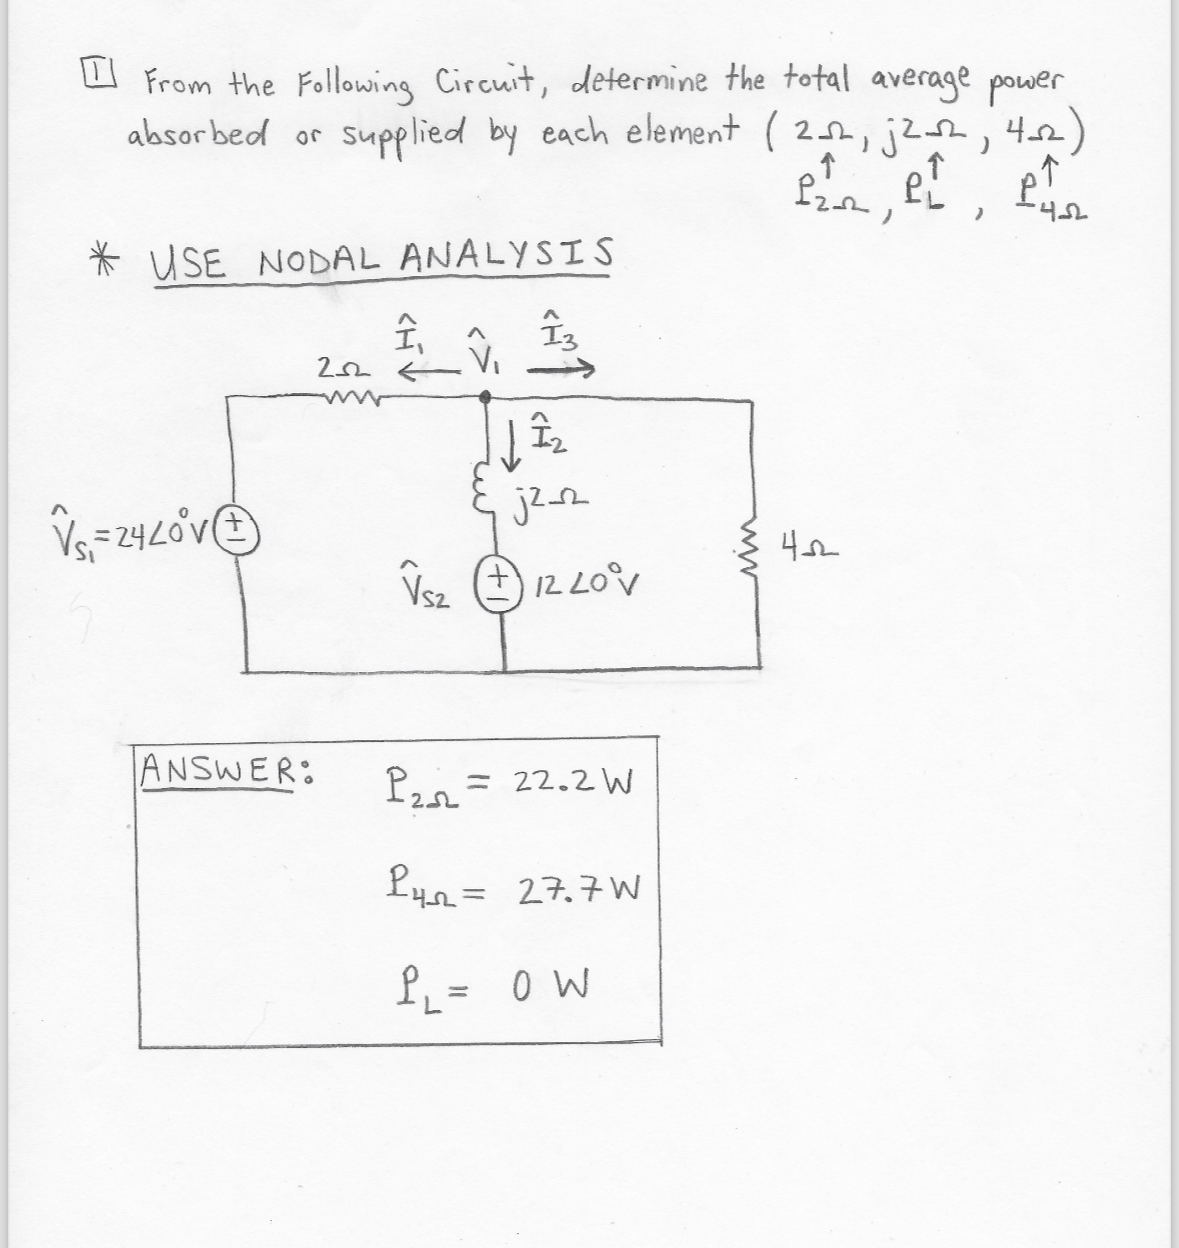 1 From the Following Circuit, determine the total average power
absorbed or supplied by each element ( 2Ω, j2Ω, 4Ω)
↑ ↑ ↑
P2Ω, PL, P4Ω
* USE NODAL ANALYSIS
Î1 V̂1 Î3
2Ω ← →
↓ Î2
j2Ω
V̂S1=24∠0°V + −
4Ω
V̂S2 + − 12∠0°V
ANSWER: P2Ω = 22.2 W
P4Ω = 27.7 W
PL = 0 W